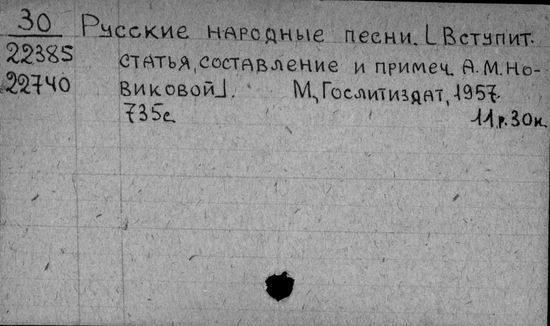 30 Русские народные песни. [Вступит.
22385 статья, составление и примеч. А.М.Но-
22740 виковой]. М, Гослитиздат, 1957.
735с 11р.30к